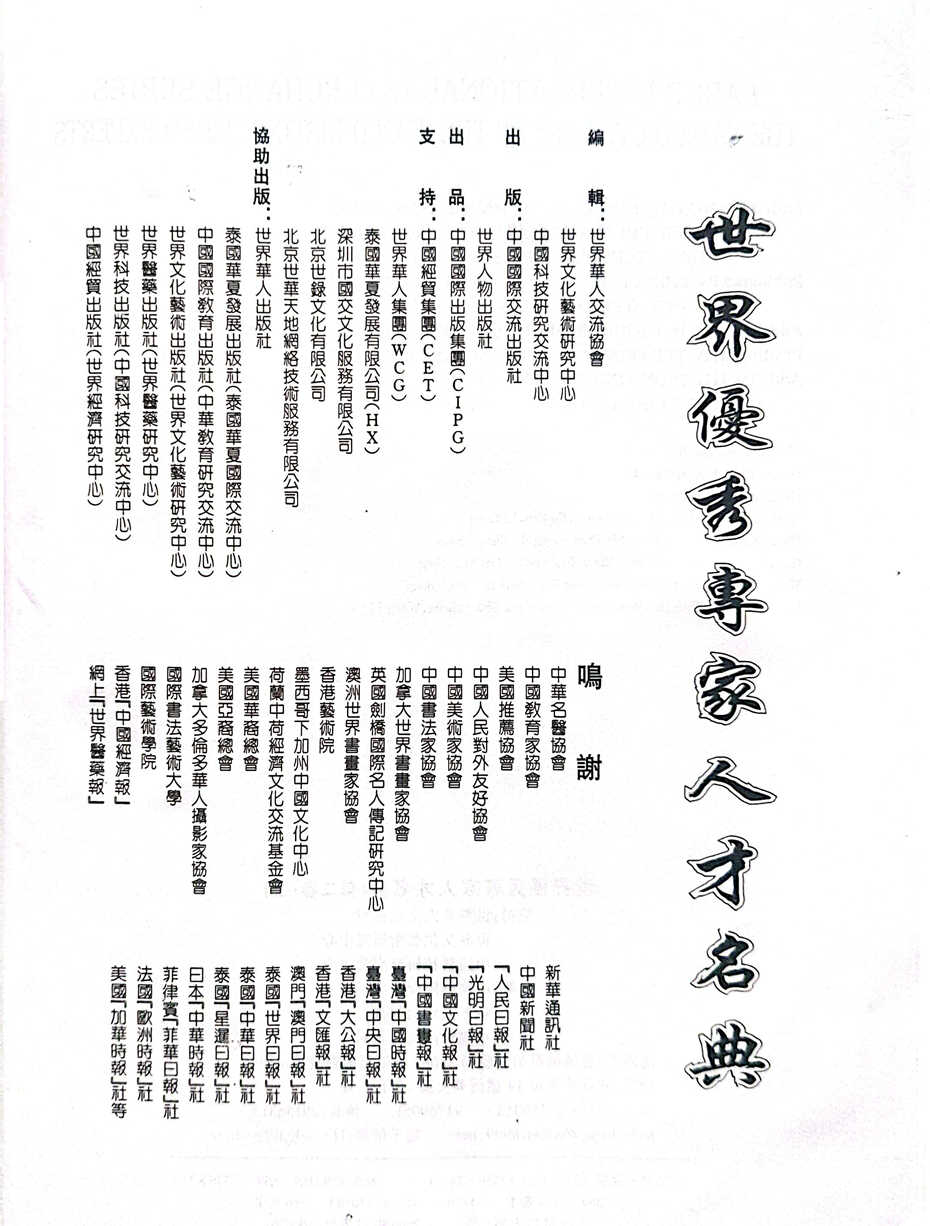 世界優秀專家人才名典
編　輯：世界華人交流協會
世界文化藝術研究中心
中國科技研究交流中心
出　版：中國國際交流出版社
世界人物出版社
出　品：中國國際出版集團(CIPG)
支　持：中國經貿集團(CET)
世界華人集團(WCG)
泰國華夏發展有限公司(HX)
深圳市國交文化服務有限公司
北京世録文化有限公司
北京世華天地網絡技術服務有限公司
協助出版：世界華人出版社
泰國華夏發展出版社(泰國華夏國際交流中心)
中國國際教育出版社(中華教育研究交流中心)
世界文化藝術出版社(世界文化藝術研究中心)
世界醫藥出版社(世界醫藥研究中心)
世界科技出版社(中國科技研究交流中心)
中國經貿出版社(世界經濟研究中心)
鳴　謝
中華名醫協會
中國教育家協會
美國推薦協會
中國人民對外友好協會
中國美術家協會
中國書法家協會
加拿大世界書畫家協會
英國劍橋國際名人傳記研究中心
澳洲世界書畫家協會
香港藝術院
墨西哥下加州中國文化中心
荷蘭中荷經濟文化交流基金會
美國華裔總會
美國亞裔總會
加拿大多倫多華人攝影家協會
國際書法藝術大學
國際藝術學院
香港「中國經濟報」
網上「世界醫藥報」
新華通訊社
中國新聞社
「人民日報」社
「光明日報」社
「中國文化報」社
「中國書畫報」社
臺灣「中國時報」社
臺灣「中央日報」社
香港「大公報」社
香港「文匯報」社
澳門「澳門日報」社
泰國「世界日報」社
泰國「中華日報」社
泰國「星暹日報」社
日本「中華時報」社
菲律賓「菲華日報」社
法國「歐洲時報」社
美國「加華時報」社等